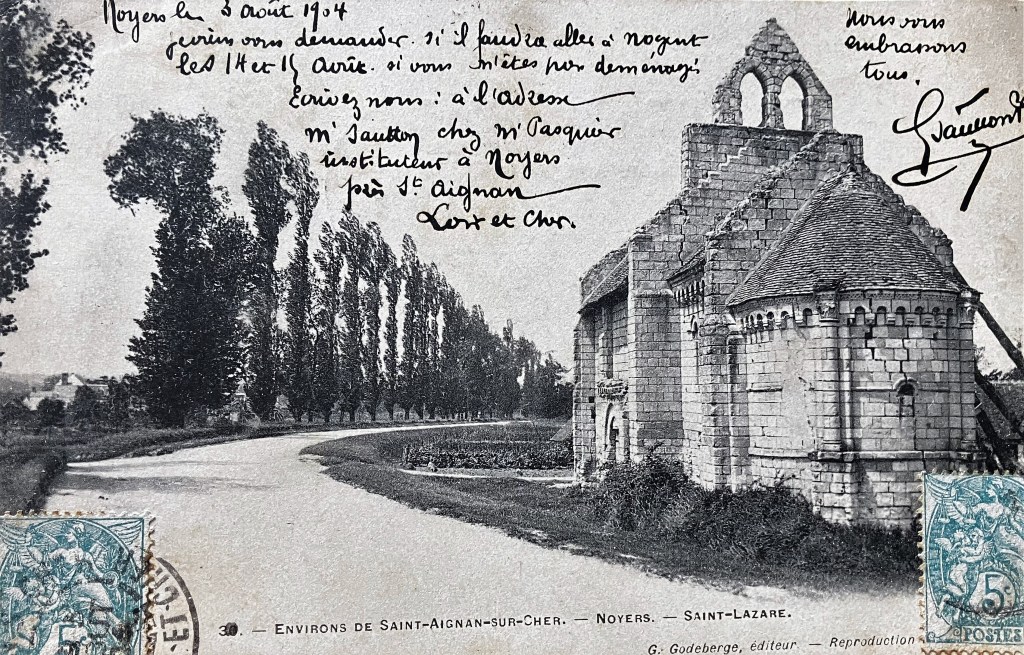 Noyers le 3 Août 1904
venons vous demander si il faudra aller à nogent
les 14 et 15 Août. si vous n'êtes pas deménagé
Ecrivez nous : à l'adresse
Mr chez Mr Pasquier
instituteur à Noyers
près St Aignan
Loir et Cher.
Nous vous
embrassons
tous.
ET-CH
5c
POSTES
30. — ENVIRONS DE SAINT-AIGNAN-SUR-CHER. — NOYERS. — SAINT-LAZARE.
G. Godeberge, éditeur. — Reproduction